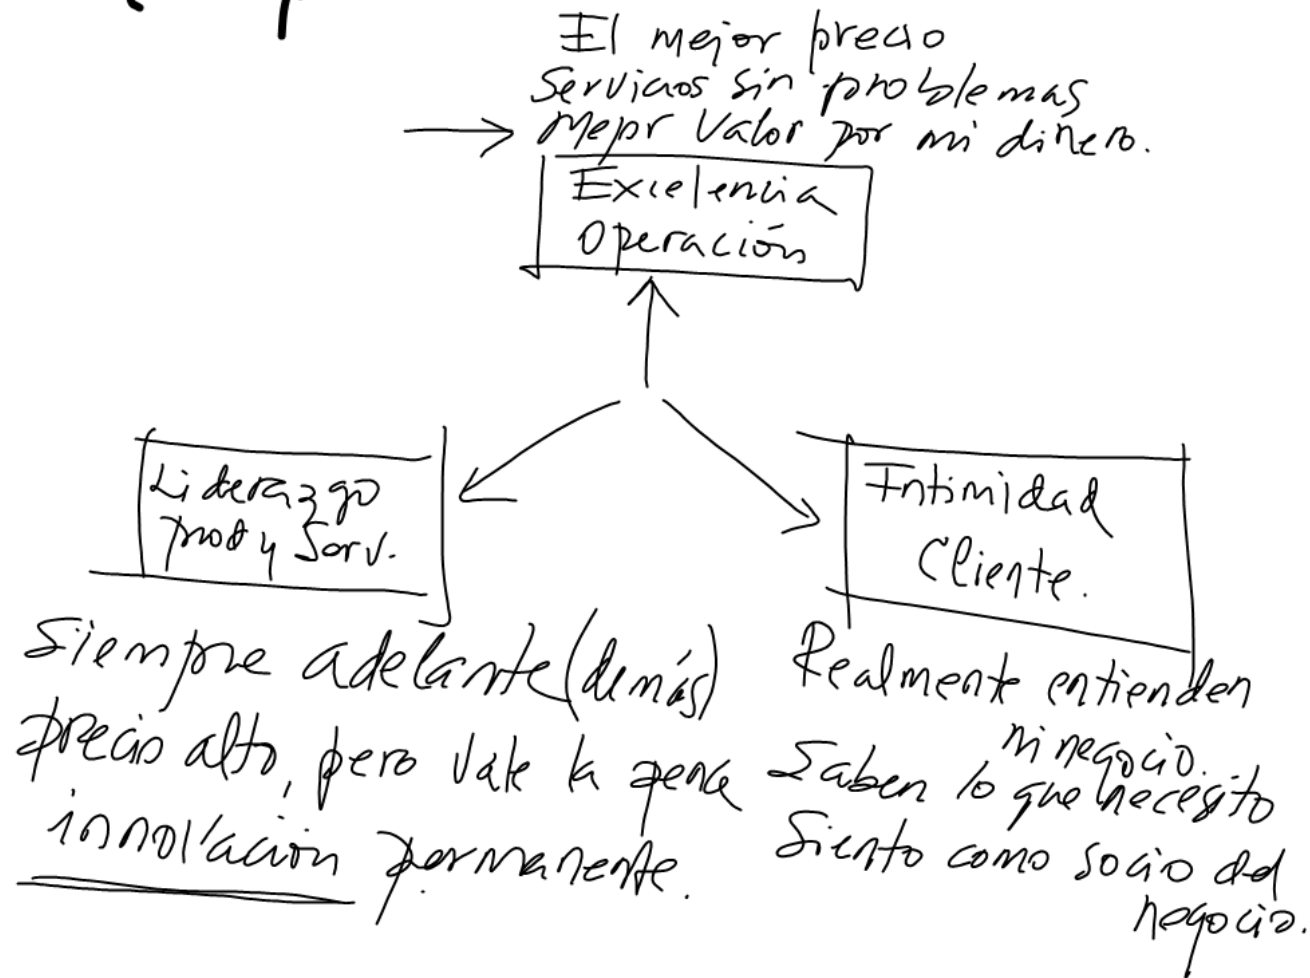 El mejor precio
Servicios sin problemas
Mejor Valor por mi dinero.
Excelencia
Operación
Liderazgo
prod y Serv.
Intimidad
Cliente.
Siempre adelante (demás)
precio alto, pero vale la pena
innovación permanente.
Realmente entienden
mi negocio.
Saben lo que necesito
Siento como socio del
negocio.